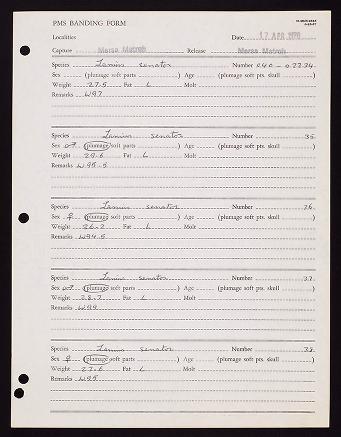 PMS BANDING FORM
Localities Date 17 APR 1970
Capture Mersa Matruh Release Mersa Matruh
Species Lanius senator Number 040-02234
Sex (plumage soft parts ) Age (plumage soft pts. skull )
Weight 27.5 Fat L Molt
Remarks W97
Species Lanius senator Number 35
Sex (plumage/soft parts ) Age (plumage soft pts. skull )
Weight 29.6 Fat L Molt
Remarks W95.5
Species Lanius senator Number 36
Sex ♀ (plumage soft parts ) Age (plumage soft pts. skull )
Weight 26.2 Fat L Molt
Remarks W94.5
Species Lanius senator Number 37
Sex (plumage soft parts ) Age (plumage soft pts. skull )
Weight 28.7 Fat L Molt
Remarks W99
Species Lanius senator Number 38
Sex ♀ (plumage soft parts ) Age (plumage soft pts. skull )
Weight 27.6 Fat L Molt
Remarks W95